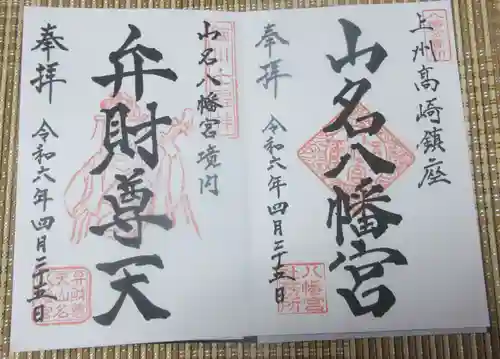 上州高崎鎮座
山名八幡宮
奉拝
令和六年四月二十五日
山名八幡宮境内
弁財尊天
奉拝
令和六年四月二十五日